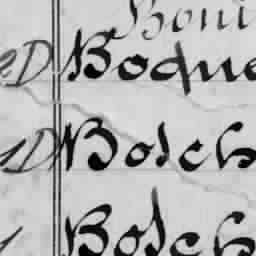 Boni
D Boque
D Bosch
Bosch